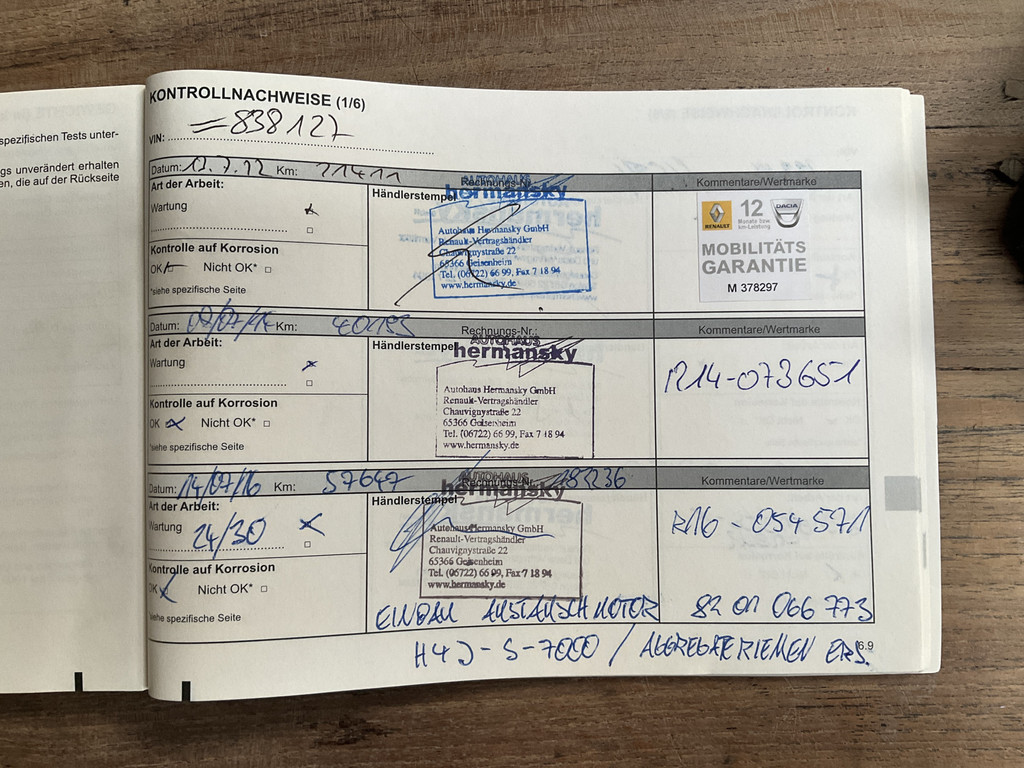 spezifischen Tests unter-
gs unverändert erhalten
en, die auf der Rückseite
KONTROLLNACHWEISE (1/6)
VIN: 838127
Datum: Km: 21411 Rechnungs-Nr. Kommentare/Wertmarke
Art der Arbeit:
Wartung
Kontrolle auf Korrosion
OK Nicht OK*
*siehe spezifische Seite
Händlerstempel
AUTOHAUS
hermansky
Autohaus Hermansky GmbH
Renault-Vertragshändler
Chauvignystraße 22
65366 Geisenheim
Tel. (06722) 66 99, Fax 7 18 94
www.hermansky.de
RENAULT
12
Monate bzw
km-Leistung
DACIA
MOBILITÄTS
GARANTIE
M 378297
Datum: 09/07/14 Km: Rechnungs-Nr.: Kommentare/Wertmarke
Art der Arbeit:
Wartung
Kontrolle auf Korrosion
OK Nicht OK*
*siehe spezifische Seite
Händlerstempel
AUTOHAUS
hermansky
Autohaus Hermansky GmbH
Renault-Vertragshändler
Chauvignystraße 22
65366 Geisenheim
Tel. (06722) 66 99, Fax 7 18 94
www.hermansky.de
R14-073651
Datum: 14/07/16 Km: 57647 Rechnungs-Nr. Kommentare/Wertmarke
Art der Arbeit:
Wartung 24/30
Kontrolle auf Korrosion
OK Nicht OK*
*siehe spezifische Seite
Händlerstempel
AUTOHAUS
hermansky
Autohaus Hermansky GmbH
Renault-Vertragshändler
Chauvignystraße 22
65366 Geisenheim
Tel. (06722) 66 99, Fax 7 18 94
www.hermansky.de
R16-054571
EINBAU AUSTAUSCHMOTOR 82 01 066 773
H4J-S-7000 / AGGREGATERIEMEN ERS.
6.9